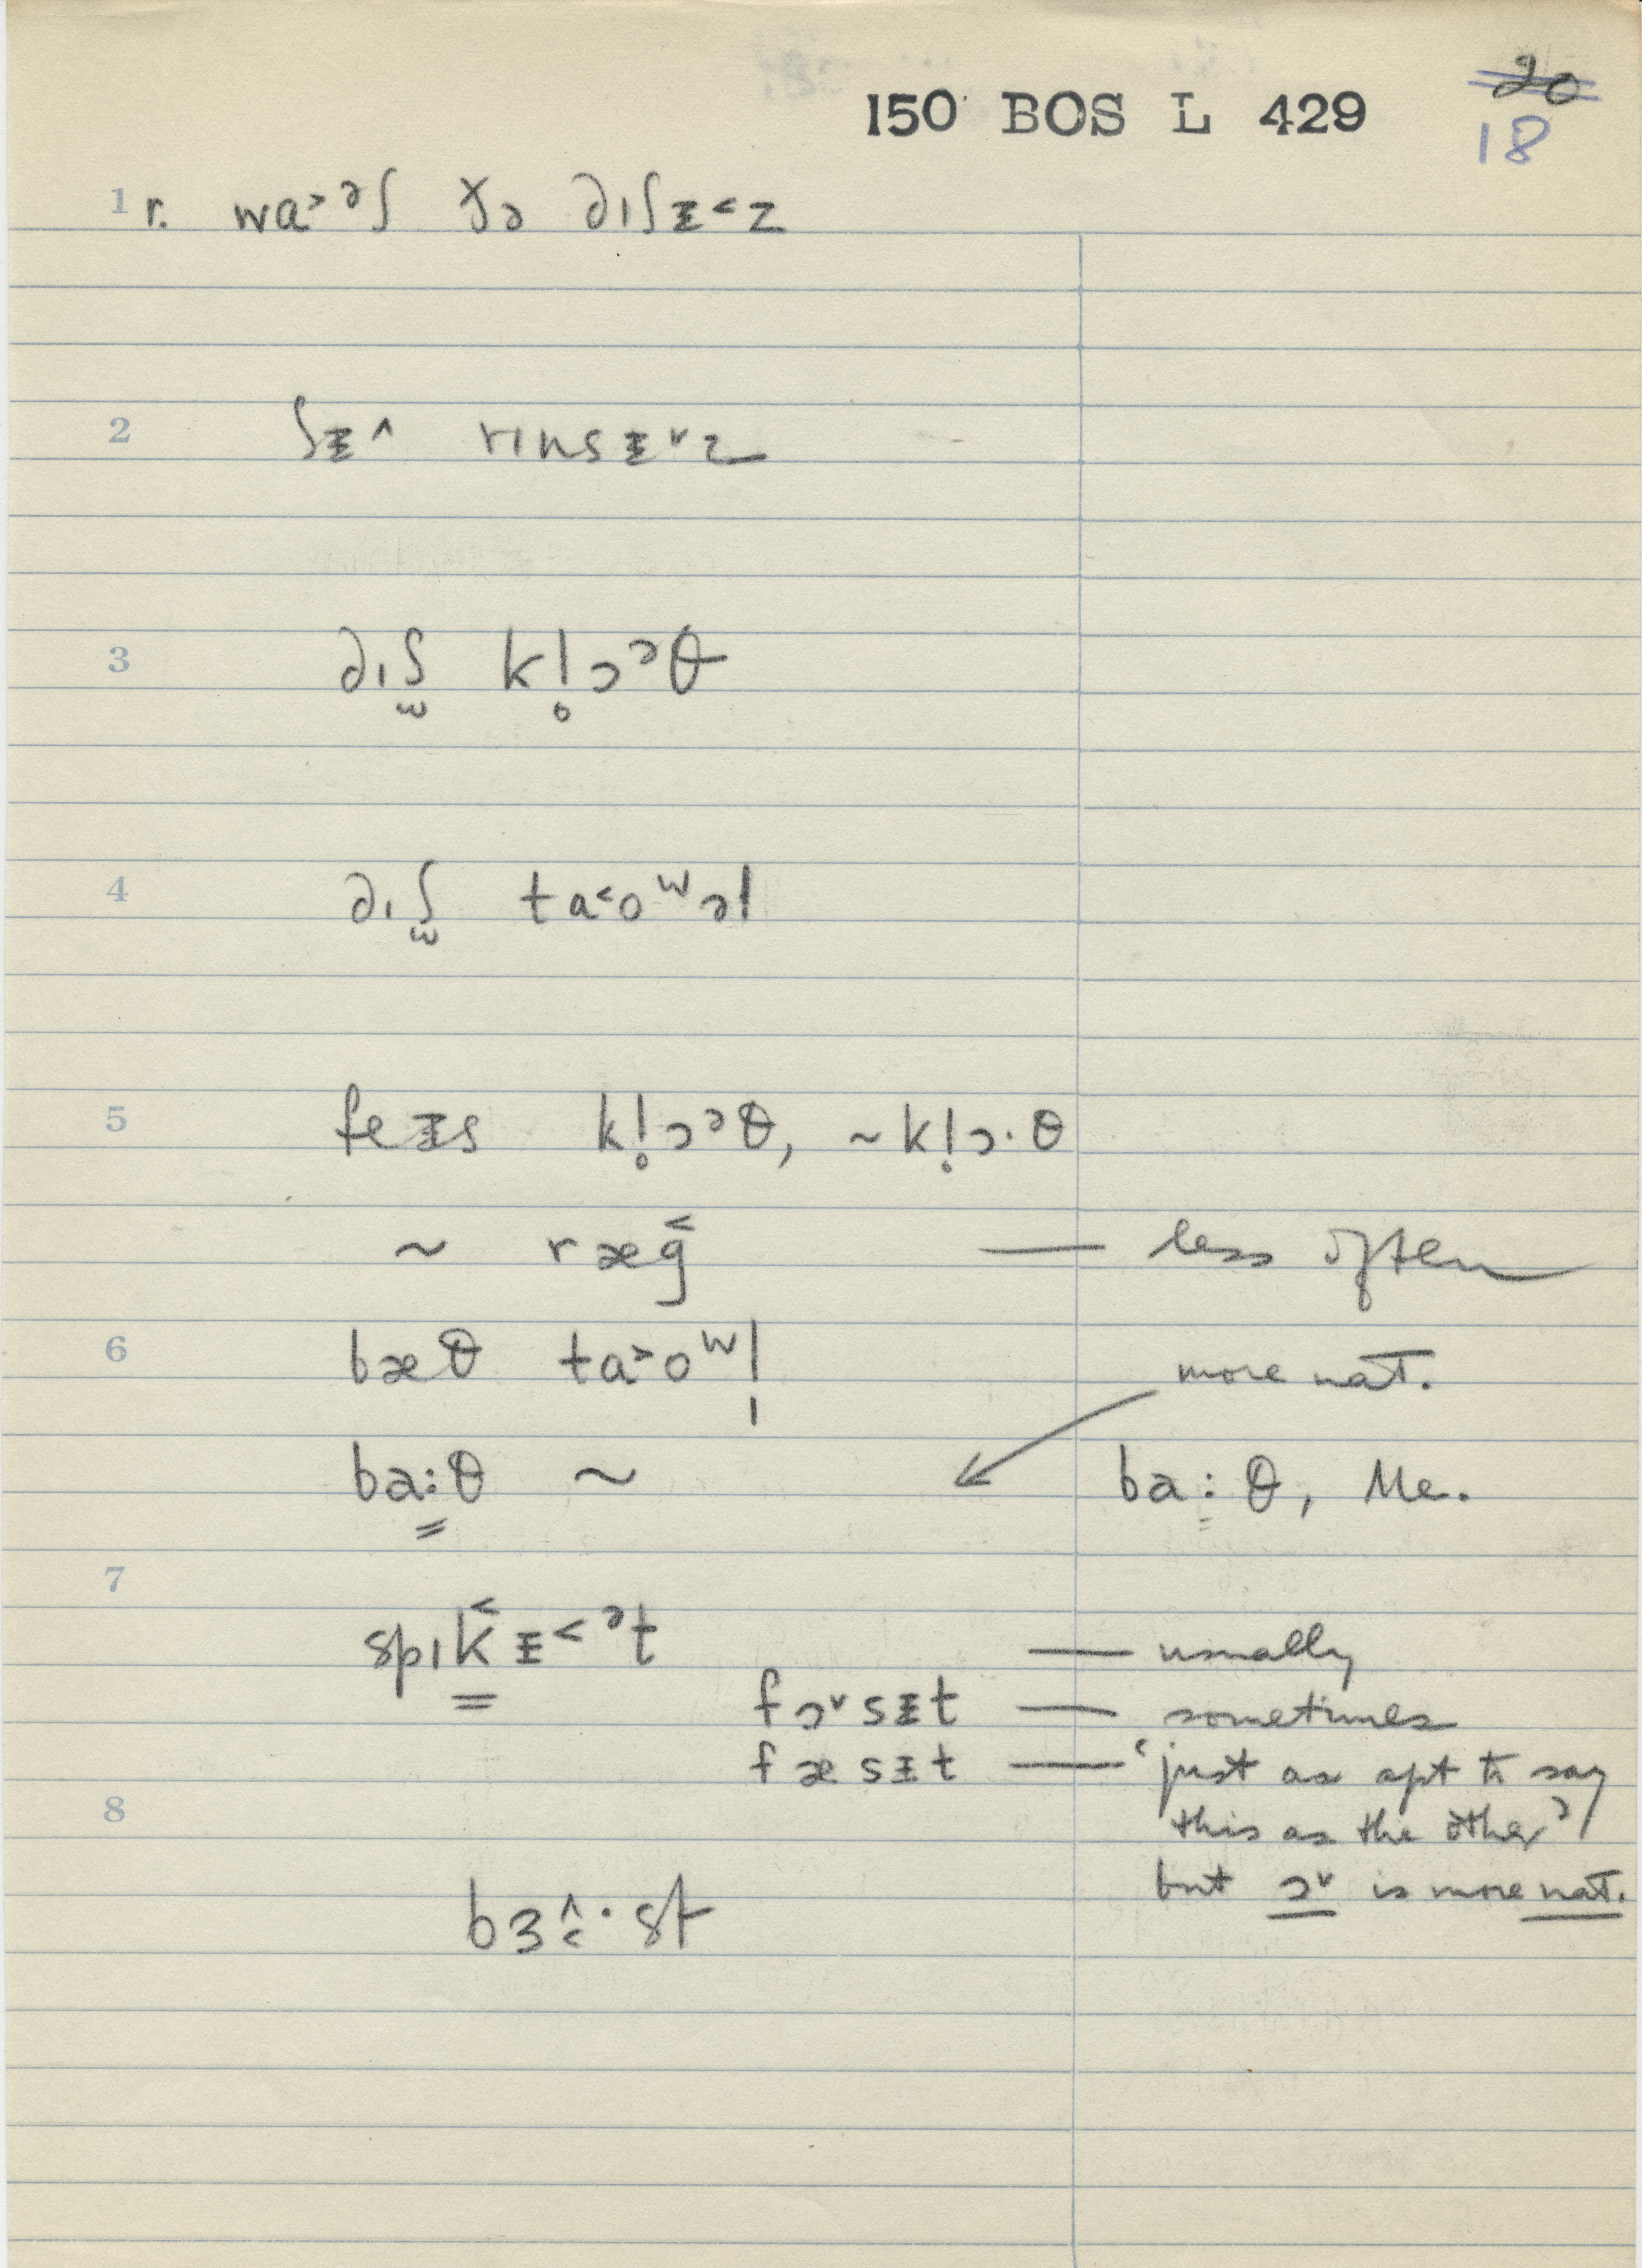 150 BOS L 429
20
18
1 r. wa˃ᵊʃ ðə dɪʃɨ˂z
2 ʃɨ˄ rɪnsɨ˅z
3 dɪʃ̫ kl̥ɔᵊθ
4 dɪʃ̫ ta˂oʷəl
5 feɨs kl̥ɔᵊθ, ~kl̥ɔ·θ
~ ræg˂ — less often
6 bæθ ta˃oʷl̩ more nat.
ba:θ ~ ba:θ, Me.
7
spɪk˂ɨ˂ᵊt — usually
fɔ˅sɨt — sometimes
fæsɨt — ‘just as apt to say
8 this as the other’
but ɔ˅ is more nat.
bɜ˄˂·st